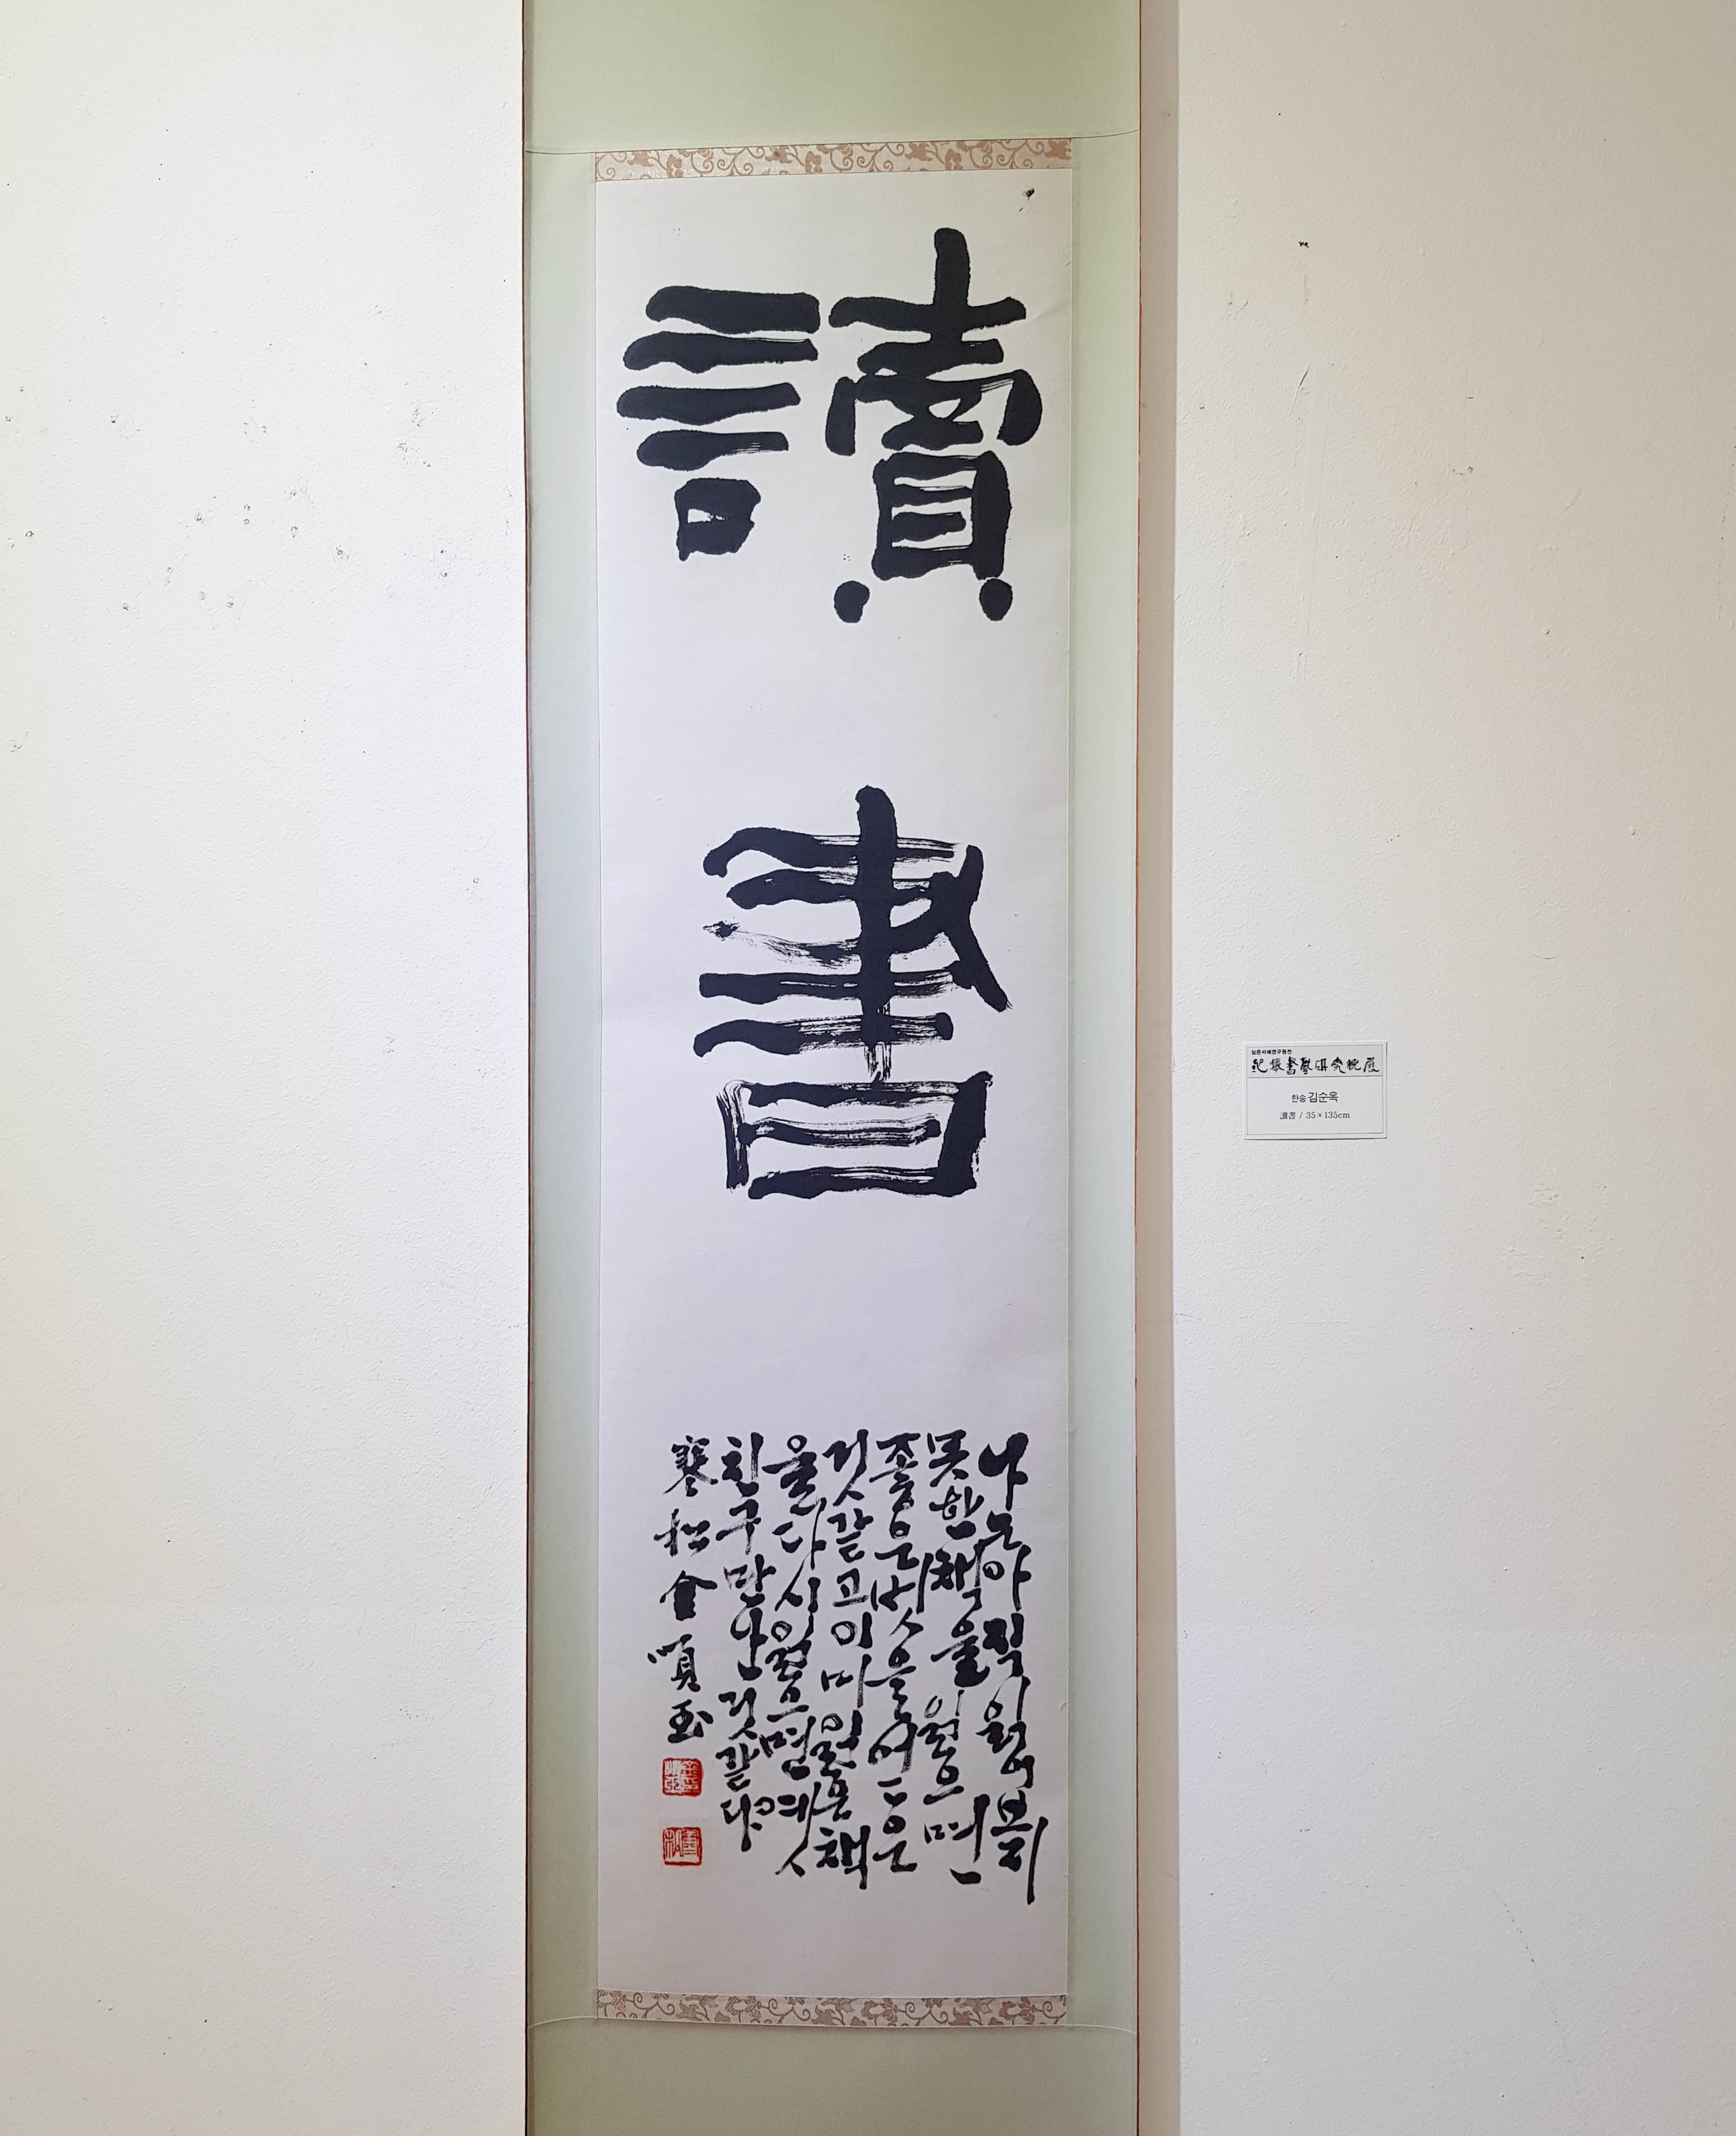 讀書
나는아직읽어보지
못한책을읽으면
좋은벗을얻은
것같고이미읽은책
을다시읽으면옛
친구만난것같다
寒松金順玉
심은서예연구원전
書藝硏究院展
한송 김순옥
讀書 / 35×135cm